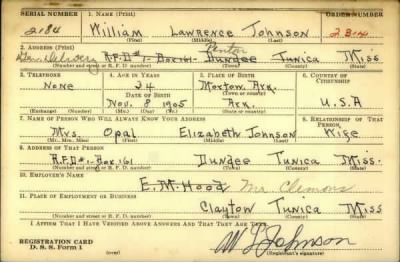 SERIAL NUMBER 1. NAME (Print) ORDER NUMBER
2184 William Lawrence Johnson 2314
(First) (Middle) (Last)
2. ADDRESS (Print) Penton
Gen. Delivery R.F.D#1-Box161 Dundee Tunica Miss
(Number and street or R. F. D. number) (Town) (County) (State)
3. TELEPHONE 4. AGE IN YEARS 5. PLACE OF BIRTH 6. COUNTRY OF CITIZENSHIP
None 34 Morton, Ark.
DATE OF BIRTH (Town or county)
Nov. 8 1905 Ark. U.S.A
(Exchange) (Number) (Mo.) (Day) (Yr.) (State or country)
7. NAME OF PERSON WHO WILL ALWAYS KNOW YOUR ADDRESS 8. RELATIONSHIP OF THAT PERSON
Mrs. Opal Elizabeth Johnson Wife
(Mr., Mrs., Miss) (First) (Middle) (Last)
9. ADDRESS OF THAT PERSON
R.F.D#1-Box 161 Dundee Tunica Miss.
(Number and street or R. F. D. number) (Town) (County) (State)
10. EMPLOYER'S NAME
E.M.Hood Mr Clemons
11. PLACE OF EMPLOYMENT OR BUSINESS
Clayton Tunica Miss
(Number and street or R. F. D. number) (Town) (County) (State)
I AFFIRM THAT I HAVE VERIFIED ABOVE ANSWERS AND THAT THEY ARE TRUE.
REGISTRATION CARD
D. S. S. Form 1 (over) W L Johnson
(Registrant's signature)